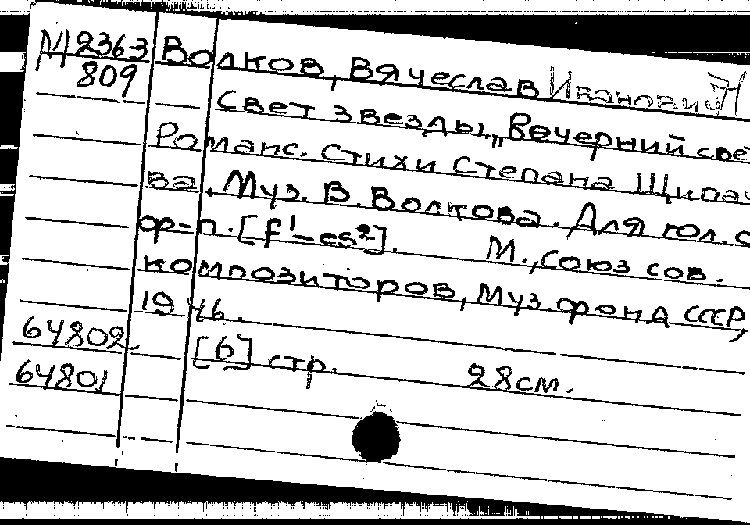 М 2363 Волков, Вячеслав Иванович
809 Свет звезды. „Вечерний све
Романс. Стихи Степана Щипач
ва. Муз. В. Волкова. Для гол. с
ф-п. [f¹–es²]. М., Союз сов.
композиторов, Муз. фонд СССР,
1946.
64802. [6] стр. 28см.
64801